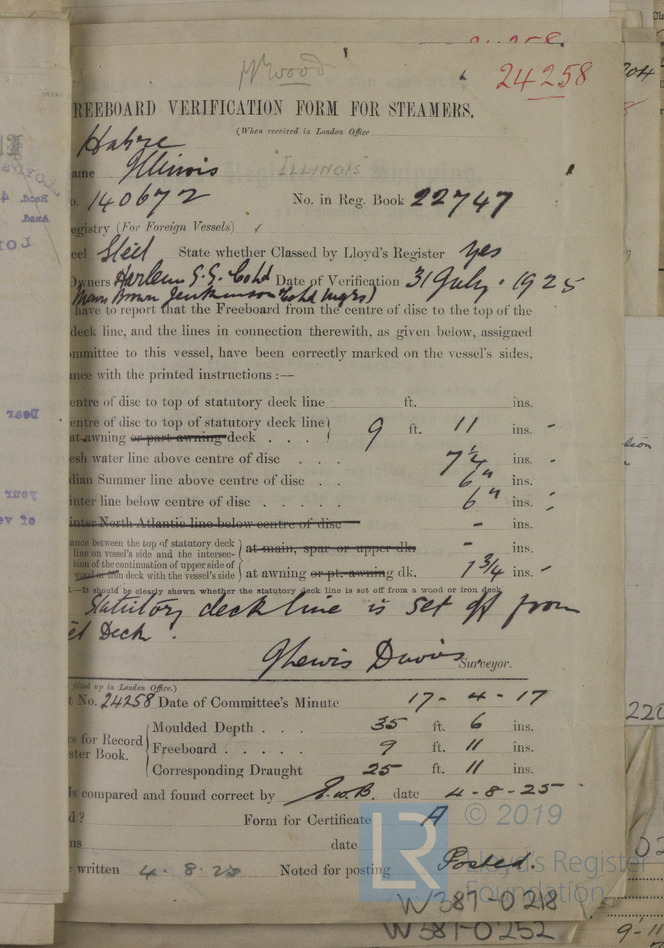 24258
REEBOARD VERIFICATION FORM FOR STEAMERS.
(When received in London Office
Havre
ame Illinois "ILLINOIS"
o. 140672 No. in Reg. Book 22747
egistry (For Foreign Vessels)
eel Steel State whether Classed by Lloyd's Register Yes
Owners Harlem S.S. Co Ltd Date of Verification 31 July. 1925
(Messrs Brown Jenkinson & Co Ltd Mgrs)
have to report that the Freeboard from the centre of disc to the top of the
deck line, and the lines in connection therewith, as given below, assigned
ommittee to this vessel, have been correctly marked on the vessel's sides,
ance with the printed instructions :—
entre of disc to top of statutory deck line ft. ins.
entre of disc to top of statutory deck line
at awning or part awning deck . . . 9 ft. 11 ins.
esh water line above centre of disc . . . 7¼ ins.
dian Summer line above centre of disc . . 6" ins.
inter line below centre of disc . . . . . 6" ins.
inter North Atlantic line below centre of disc - ins.
ance between the top of statutory deck
line on vessel's side and the intersec-
tion of the continuation of upper side of
wood or iron deck with the vessel's side
at main, spar or upper dk. - ins.
at awning or pt. awning dk. 1¾ ins.
—It should be clearly shown whether the statutory deck line is set off from a wood or iron deck
Statutory deck line is set off from
el Deck.
Lewis Davies Surveyor.
filled up in London Office.)
t No. 24258 Date of Committee's Minute 17-4-17
rs for Record
ster Book.
Moulded Depth . . . 35 ft. 6 ins.
Freeboard . . . . . 9 ft. 11 ins.
Corresponding Draught 25 ft. 11 ins.
ls compared and found correct by E.W.B. date 4-8-25
d ? Form for Certificate A
ns date
written 4.8.25 Noted for posting Posted.
© 2019
LR
Lloyd's Register
Foundation
W387-0218
W387-0252